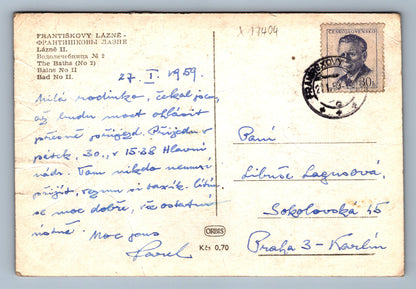 X 17404
FRANTIŠKOVY LÁZNĚ -
ФРАНТИШКОВЫ ЛАЗНЕ
Lázně II.
Водолечебница № 2
The Baths (No 2)
Bains No II
Bad No II.
ČESKOSLOVENSKO
30h
FRANTIŠKOVY
27. I. 1959.
Milá rodinko, čekal jsem,
až budu moct ohlásit
přesně příjezd. Přijedu v
pátek, 30., v 15·38 Hlavní
nádr. Tam nikdo nemusí
přijít, vezmu si taxík.
se moc dobře, vše ostatní
ústně. Moc
Pavel
Paní
Libuše
Sokolovská 45
Praha 3 - Karlín
ORBIS
Kčs 0,70